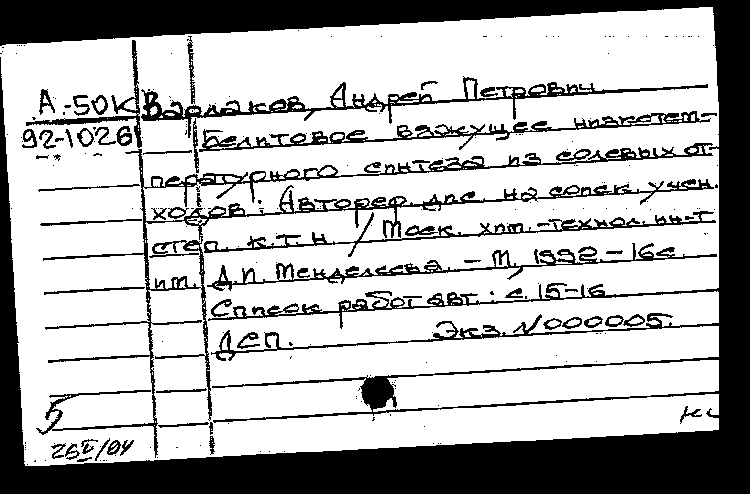 А-50К Варлаков, Андрей Петрович
92-10261 Белитовое вяжущее низкотем-
пературного синтеза из солевых от-
ходов : Автореф. дис. на соиск. учен.
степ. к.т.н. / Моск. хим.-технол. ин-т
им. Д.И. Менделеева. - М., 1992. - 16с.
Список работ авт.: с. 15-16
ДСП. Экз. N000005.
5
26 V/04